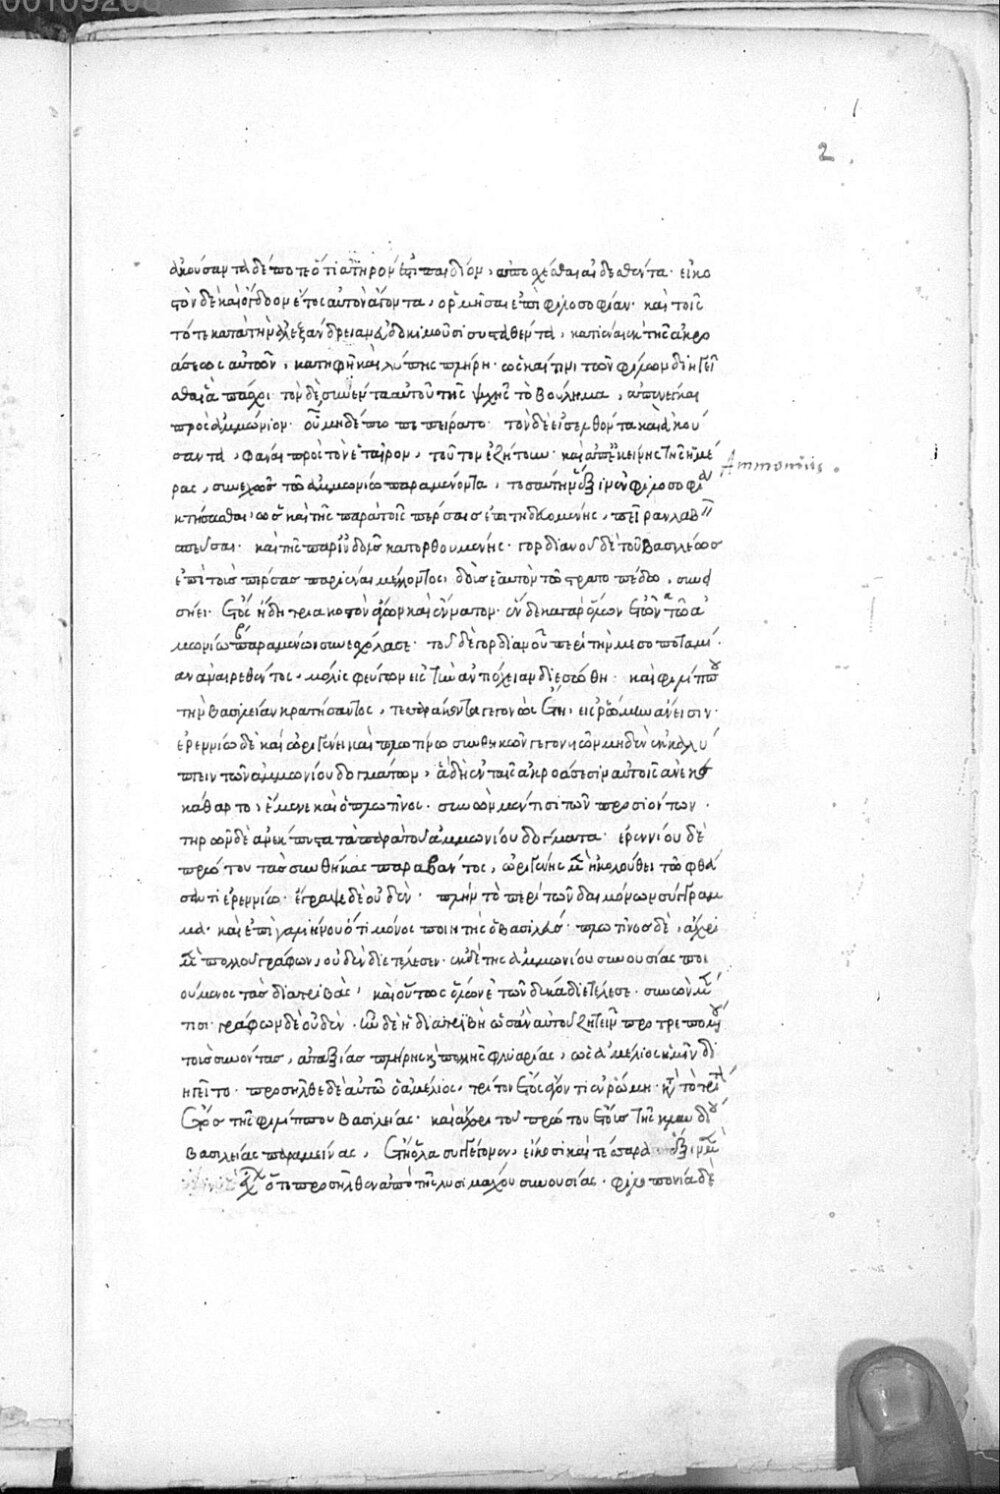 00109268
1
2
ἀκούσαντα δέ ποτε ὅτι ἀτηρόν ἐστι παιδίον, ἀποσχέσθαι αἰδεσθέντα· εἰκο
στὸν δὲ καὶ ὄγδοον ἔτος αὐτὸν ἄγοντα, ὁρμῆσαι ἐπὶ φιλοσοφίαν· καὶ τοῖς
τότε κατὰ τὴν ἀλεξανδρειαν εὐδοκιμοῦσι συσταθέντα, κατιέναι ἐκ τῆς ἀκρο
άσεως αὐτῶν, κατηφῆ καὶ λύπης πλήρη· ὡς καί τινι τῶν φίλων διηγεῖ
σθαι ἃ πάσχοι· τὸν δὲ συνέντα αὐτοῦ τῆς ψυχῆς τὸ βούλημα, ἀπενέγκαι
πρὸς ἀμμώνιον· οὗ μηδέπω πεπείρατο· τὸν δὲ εἰσελθόντα καὶ ἀκού
σαντα, φάναι πρὸς τὸν ἑταῖρον, τοῦτον ἐζήτουν· καὶ ἀπ' ἐκείνης τῆς ἡμέ
Ammonius.
ρας, συνεχῶς τῷ ἀμμωνίῳ παραμένοντα, τοσαύτην ἕξιν ἐν φιλοσοφίᾳ
κτήσασθαι, ὡς καὶ τῆς παρὰ τοῖς πέρσαις ἐπιτηδευομένης, πεῖραν λαβεῖν
σπεῦσαι· καὶ τῆς παρ' ἰνδοῖς κατορθουμένης· γορδιανοῦ δὲ τοῦ βασιλέως
ἐπὶ τοὺς πέρσας παριέναι μέλλοντος, δοὺς ἑαυτὸν τῷ στρατοπέδῳ, συνε
σῄει· ἔτος ἤδη τριακοστὸν ἄγων καὶ ἔννατον· ἕνδεκα γὰρ ὅλων ἐτῶν τῷ ἀμ
μωνίῳ παραμένων συνεσχόλασε· τοῦ δὲ γορδιανοῦ περὶ τὴν μεσοποταμί
αν ἀναιρεθέντος, μόλις φεύγων εἰς τὴν ἀντιόχειαν διεσώθη· καὶ φιλίππου
τὴν βασιλείαν κρατήσαντος, τεσσαράκοντα γεγονὼς ἔτη, εἰς ῥώμην ἄνεισιν·
ἐρεννίῳ δὲ καὶ ὠριγένει καὶ πλωτίνῳ συνθηκῶν γεγονυιῶν μηδὲν ἐκκαλύ
πτειν τῶν ἀμμωνίου δογμάτων, ἃ δὴ ἐν ταῖς ἀκροάσεσιν αὐτοῖς ἀνεκε
κάθαρτο, ἔμενε καὶ ὁ πλωτῖνος· συνὼν μέν τισι τῶν προσιόντων·
τηρῶν δὲ ἀνέκπυστα τὰ παρὰ τοῦ ἀμμωνίου δόγματα· ἐρεννίου δὲ
πρώτου τὰς συνθήκας παραβάντος, ὠριγένης μὲν ἠκολούθει τῷ φθά
σαντι ἐρεννίῳ· ἔγραψε δὲ οὐδὲν· πλὴν τὸ περὶ τῶν δαιμόνων σύγγραμ
μα· καὶ ἐπὶ γαλιήνου ὅτι μόνος ποιητὴς ὁ βασιλεύς· πλωτῖνος δὲ, ἄχρι
μὲν πολλοῦ γράφων, οὐδὲν διετέλεσεν· ἐκ δὲ τῆς ἀμμωνίου συνουσίας ποι
ούμενος τὰς διατριβὰς, καὶ οὕτως ὅλων ἐτῶν δέκα διετέλεσε· συνὼν μέν
τισι· γράφων δὲ οὐδὲν· ἦν δὲ ἡ διατριβὴ ὡς ἂν αὐτοῦ ζητεῖν προτρεπομένου
τοὺς συνόντας, ἀταξίας πλήρης καὶ πολλῆς φλυαρίας, ὡς ἀμέλιος ἡμῖν δι
ηγεῖτο· προσῆλθε δὲ αὐτῷ ὁ ἀμέλιος, τρίτον ἔτος ἄγοντι ἐν ῥώμη· κατὰ τὸ τρίτον
ἔτος τῆς φιλίππου βασιλείας· καὶ ἄχρι τοῦ πρώτου ἔτους τῆς κλαυδίου
βασιλείας παραμείνας, ἔτη ὅλα συγγέγονεν, εἴκοσι καὶ τέσσαρα· ἕξιν μὲν
ὅτε προσῆλθεν ἀπὸ τῆς λυσιμάχου συνουσίας· φιλοπονίᾳ δὲ